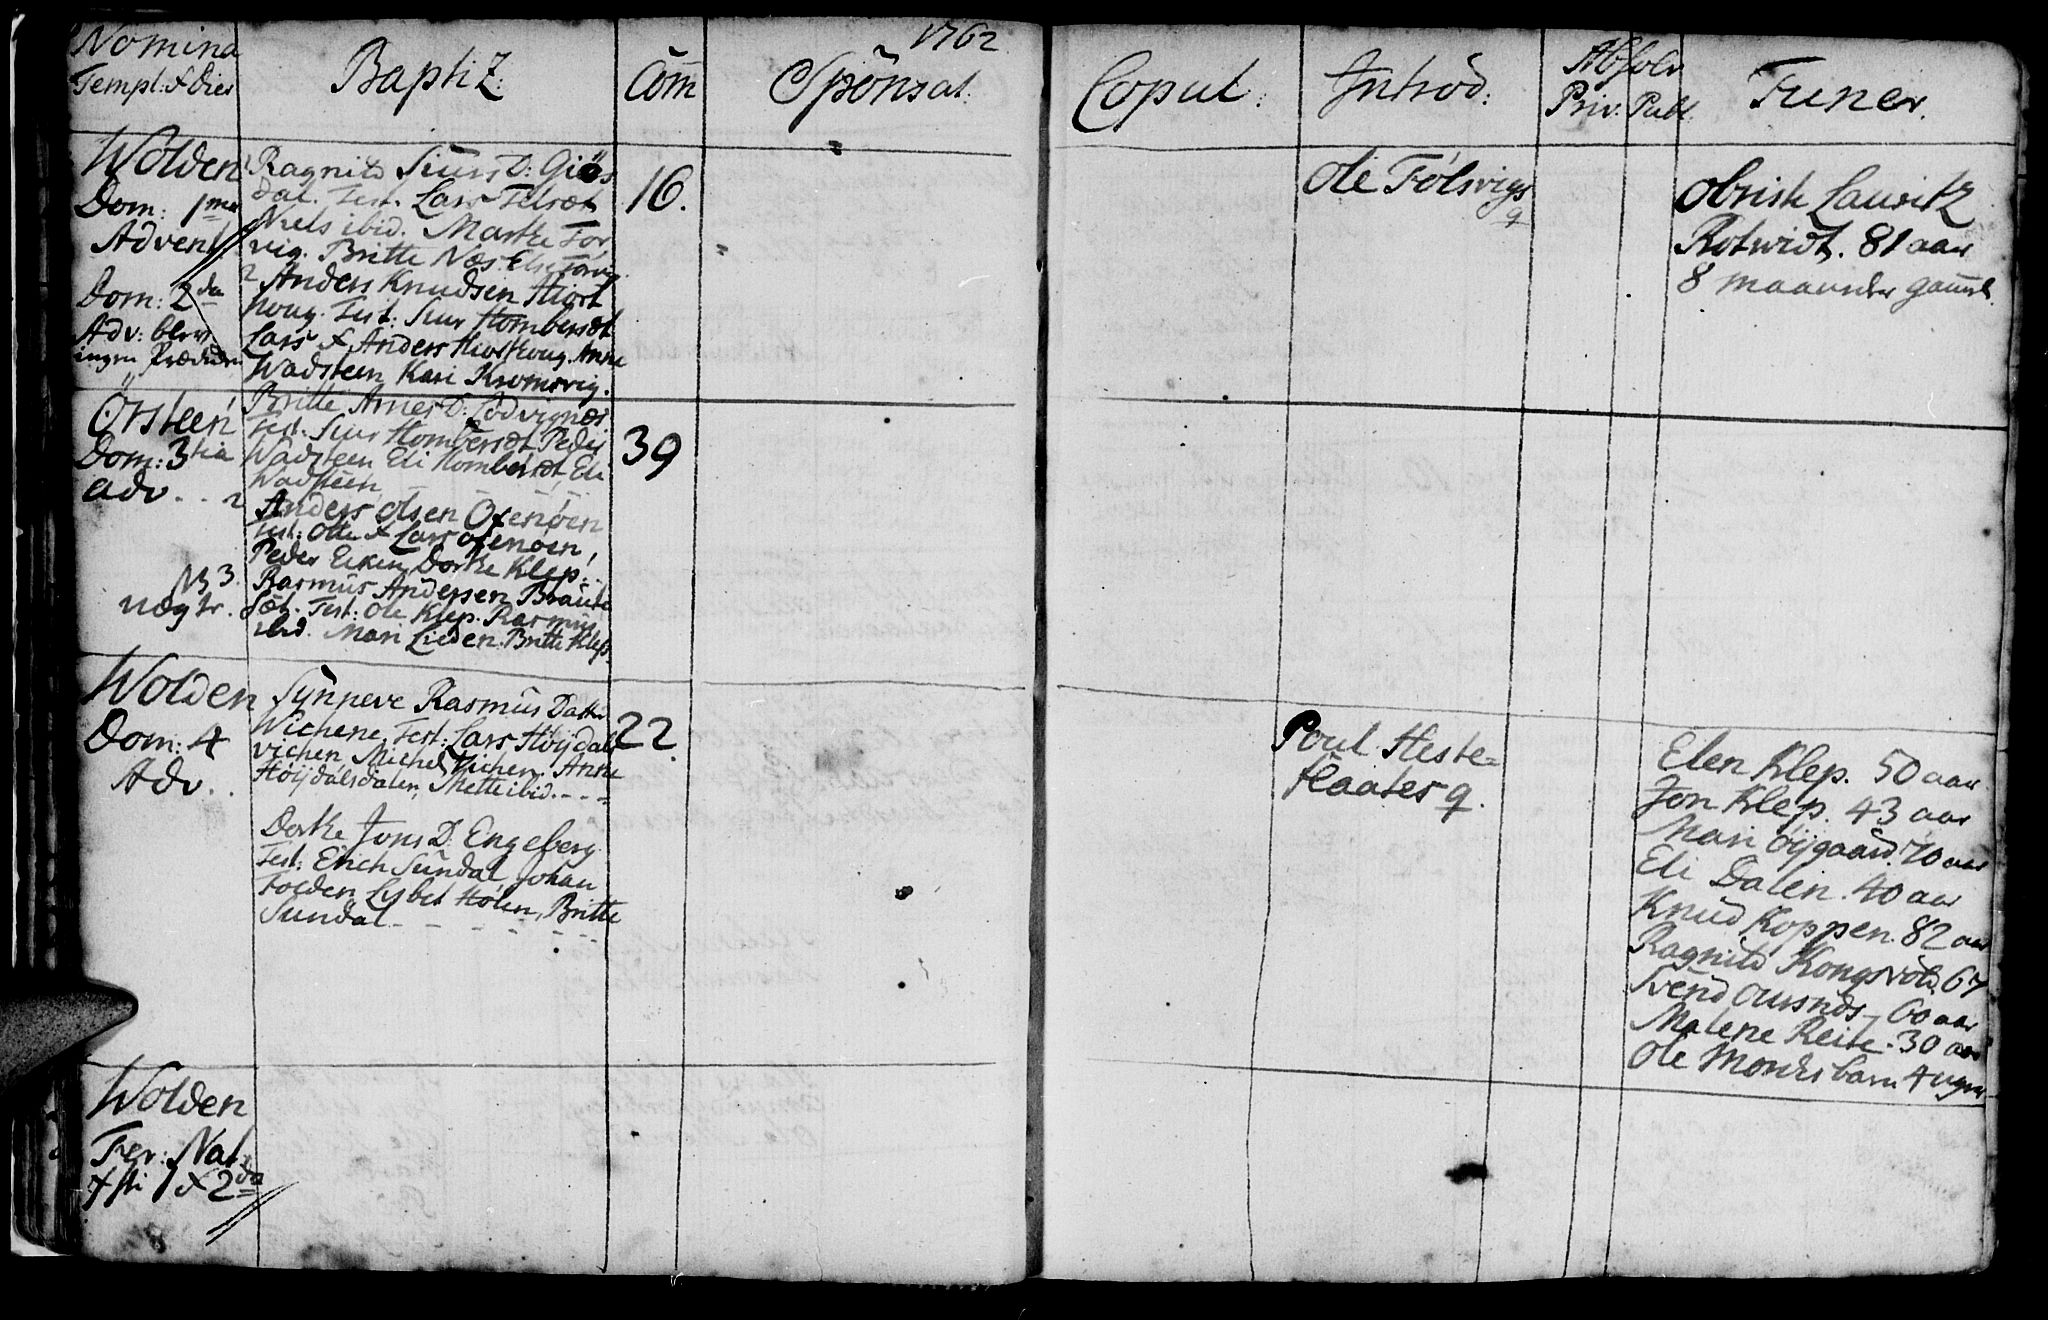 1762
Nomina
Templ: & Dies
Baptiz:
Com̅
Sponsal:
Copul:
Introd:
Absolv
Priv. Publ.
Funer.
Wolden
Dom: 1ma
Advent
Dom: 2da
Adv: blev
ingen Prædiken
Ragnild Siurs D: Giøs
dal. Test. Lars Felsæt
Niels ibid. Marthe Tor
vig. Britte Næs. Else Torvig.
2 Anders Knudsen Hiort
houg. Test: Siur Hombersdt
Lars & Anders Hiorthoug. Anne
Wadsteen Kari Kromsvig.
16.
Ole Følsvigs
q
Obriste Lauritz
Rotwidt. 81 aar
8 maaneder gaml.
Ørsteen
Dom: 3tia
Adv. . . 2
N3 3.
uægte.
Britte Arnes D: Lodvignæs
Test. Siur Hombersdt Peder
Wadsteen Eli Hombersdt, Eli
Wadsteen
Anders Olsen Oxenøen
Test: Otte & Lars Oxenøen,
Peder Eiken Dorthe Klep:
Rasmus Andersen Braute
sæt. Test: Ole Klep. Rasmus
ibid. Mari Lieden. Britte Klep.
39
Wolden
Dom: 4
Adv. .
Synneve Rasmus Datter
Wichene. Test: Lars Høijdals
vichen, Michel Vichen. Anne
Høijdalsdalen, Mette ibid. - - -
Dorthe Jons D. Engeberg
Test: Erich Sundal Johan
Folden Lisbet Holen, Britte
Sundal. - - - - - -
22.
Poul Heste=
flaates q.
Elen Klep. 50 aar
Jon Klep. 43 aar
Mari Øijgaard. 70 aar
Eli Dalen. 40 aar
Knud Koppen. 82 aar
Ragnild Kongsvold. 67
Svend Oursnds - 60 aar
Malene Reite. 30 aar
Ole Monds barn 4 uger
Wolden
Fer: Nat.
Xsti 1 & 2da